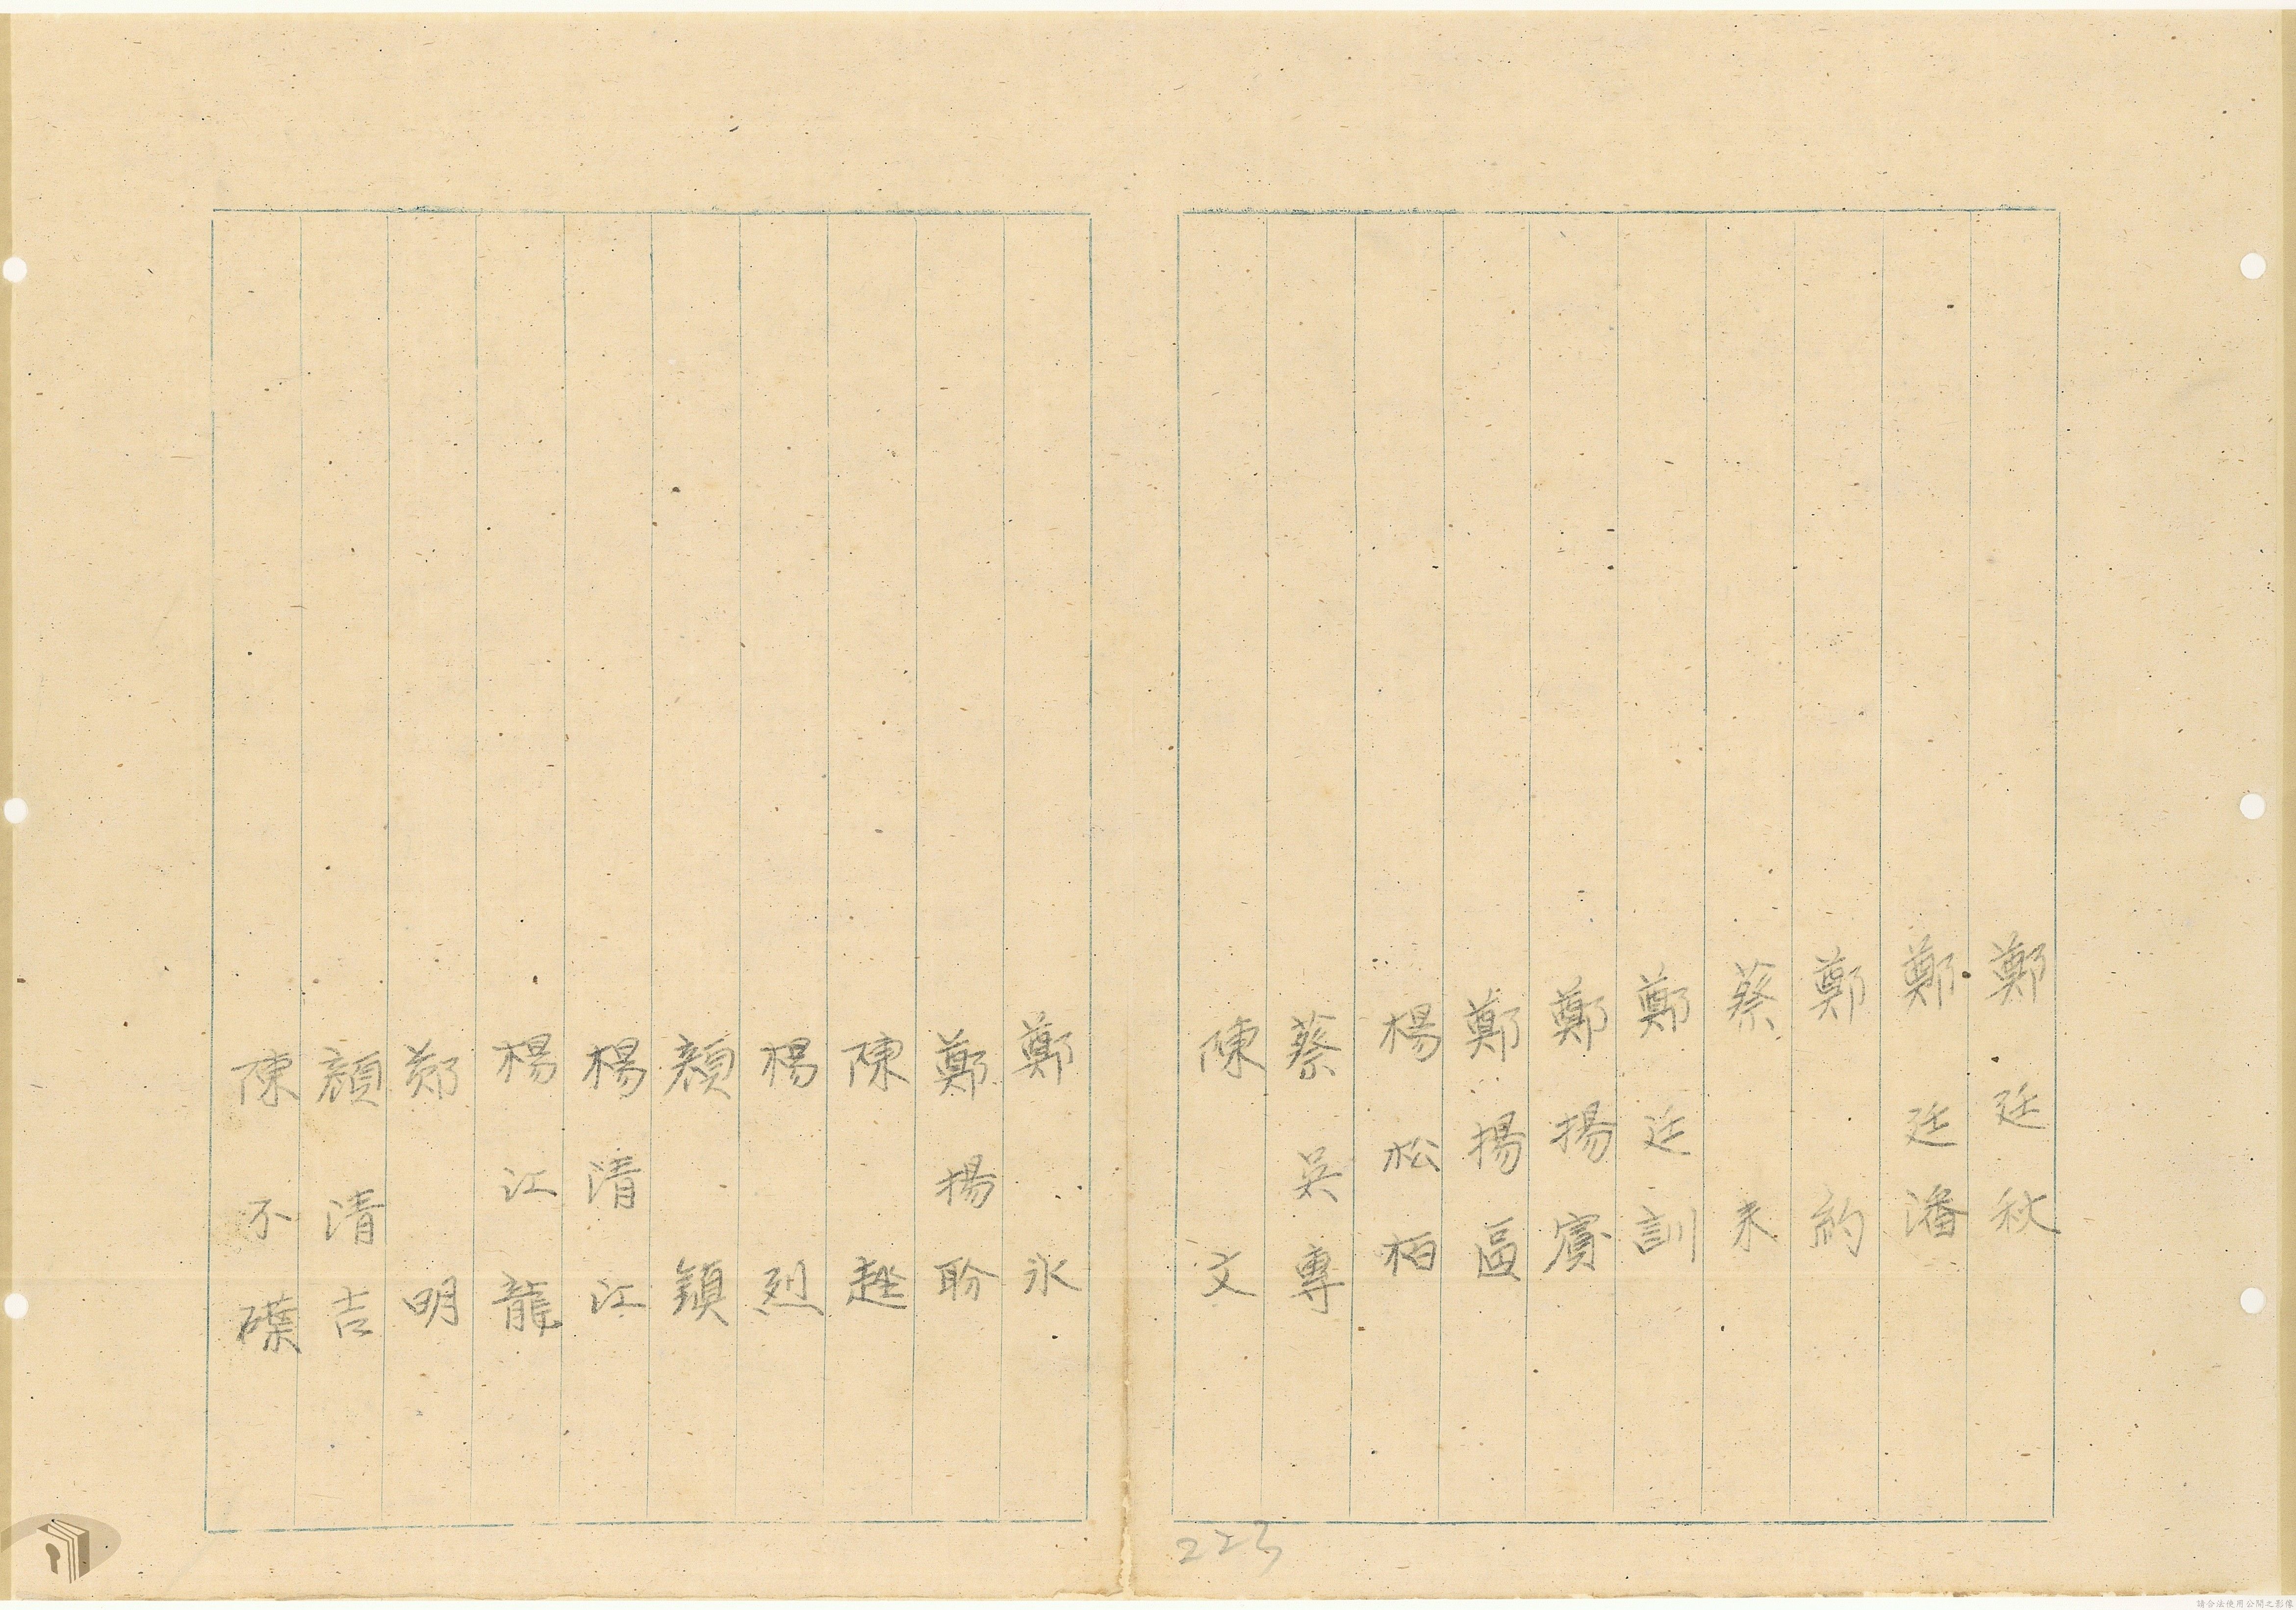 鄭廷秋
鄭廷潘
鄭約
蔡未
鄭廷訓
鄭揚賓
鄭揚區
楊松柏
蔡吳專
陳文
鄭永
鄭揚盼
陳趖
楊烈
顏鎮
楊清江
楊江龍
鄭明
顏清吉
陳不磔
223
請合法使用公開之影像